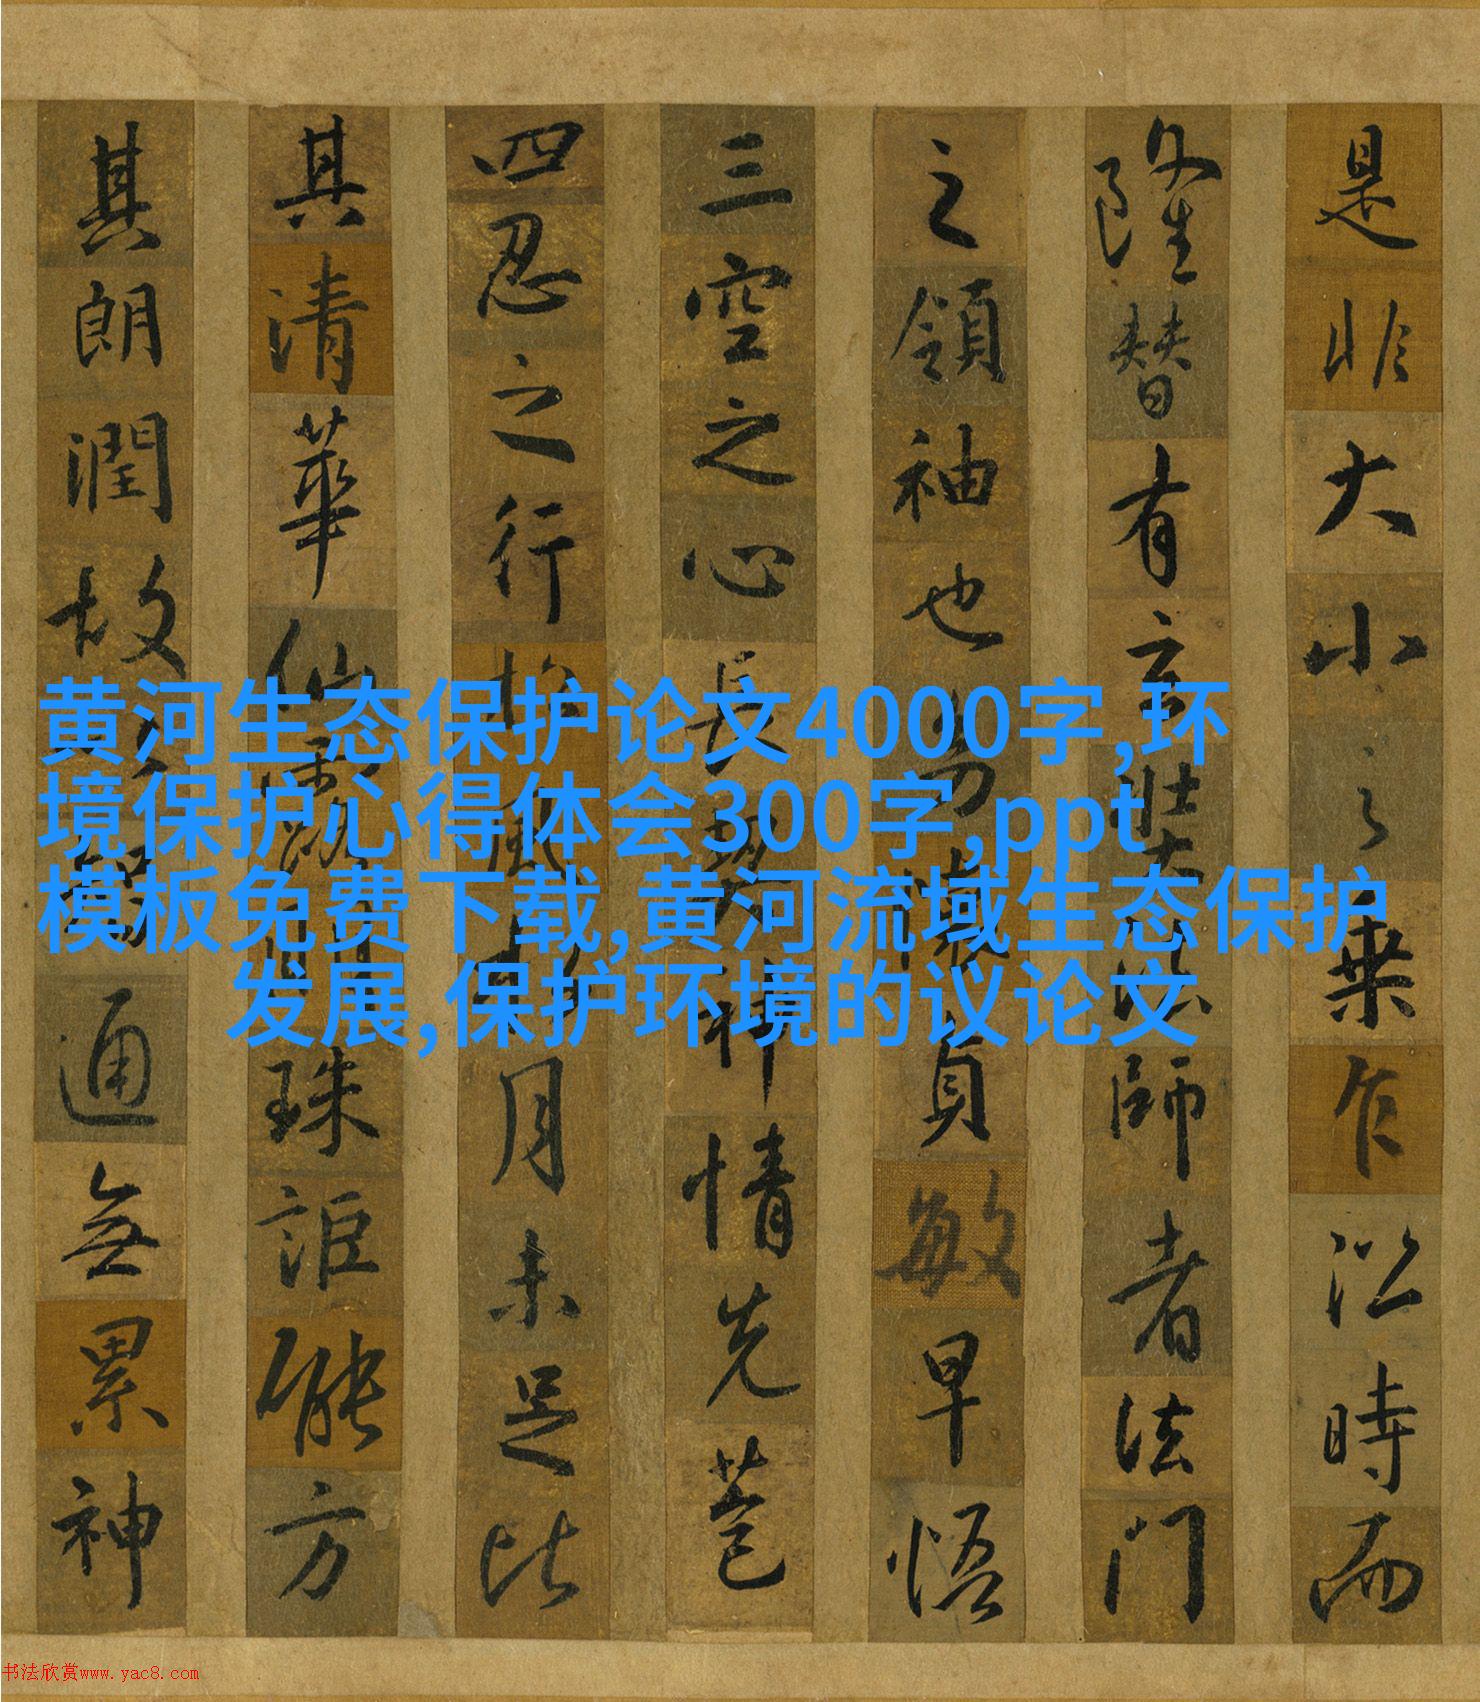 是非大小之乘乍沿時而
隆替有玄奘法師者法門
之領袖也幼懷貞敏早悟
三空之心長契神情先苞
四忍之行松風水月未足比
其清華仙露明珠詎能方
其朗潤故以智通無累神
黄河生态保护论文4000字,环
境保护心得体会300字,ppt
模板免费下载,黄河流域生态保护
发展,保护环境的议论文
书法欣赏www.yac8.com